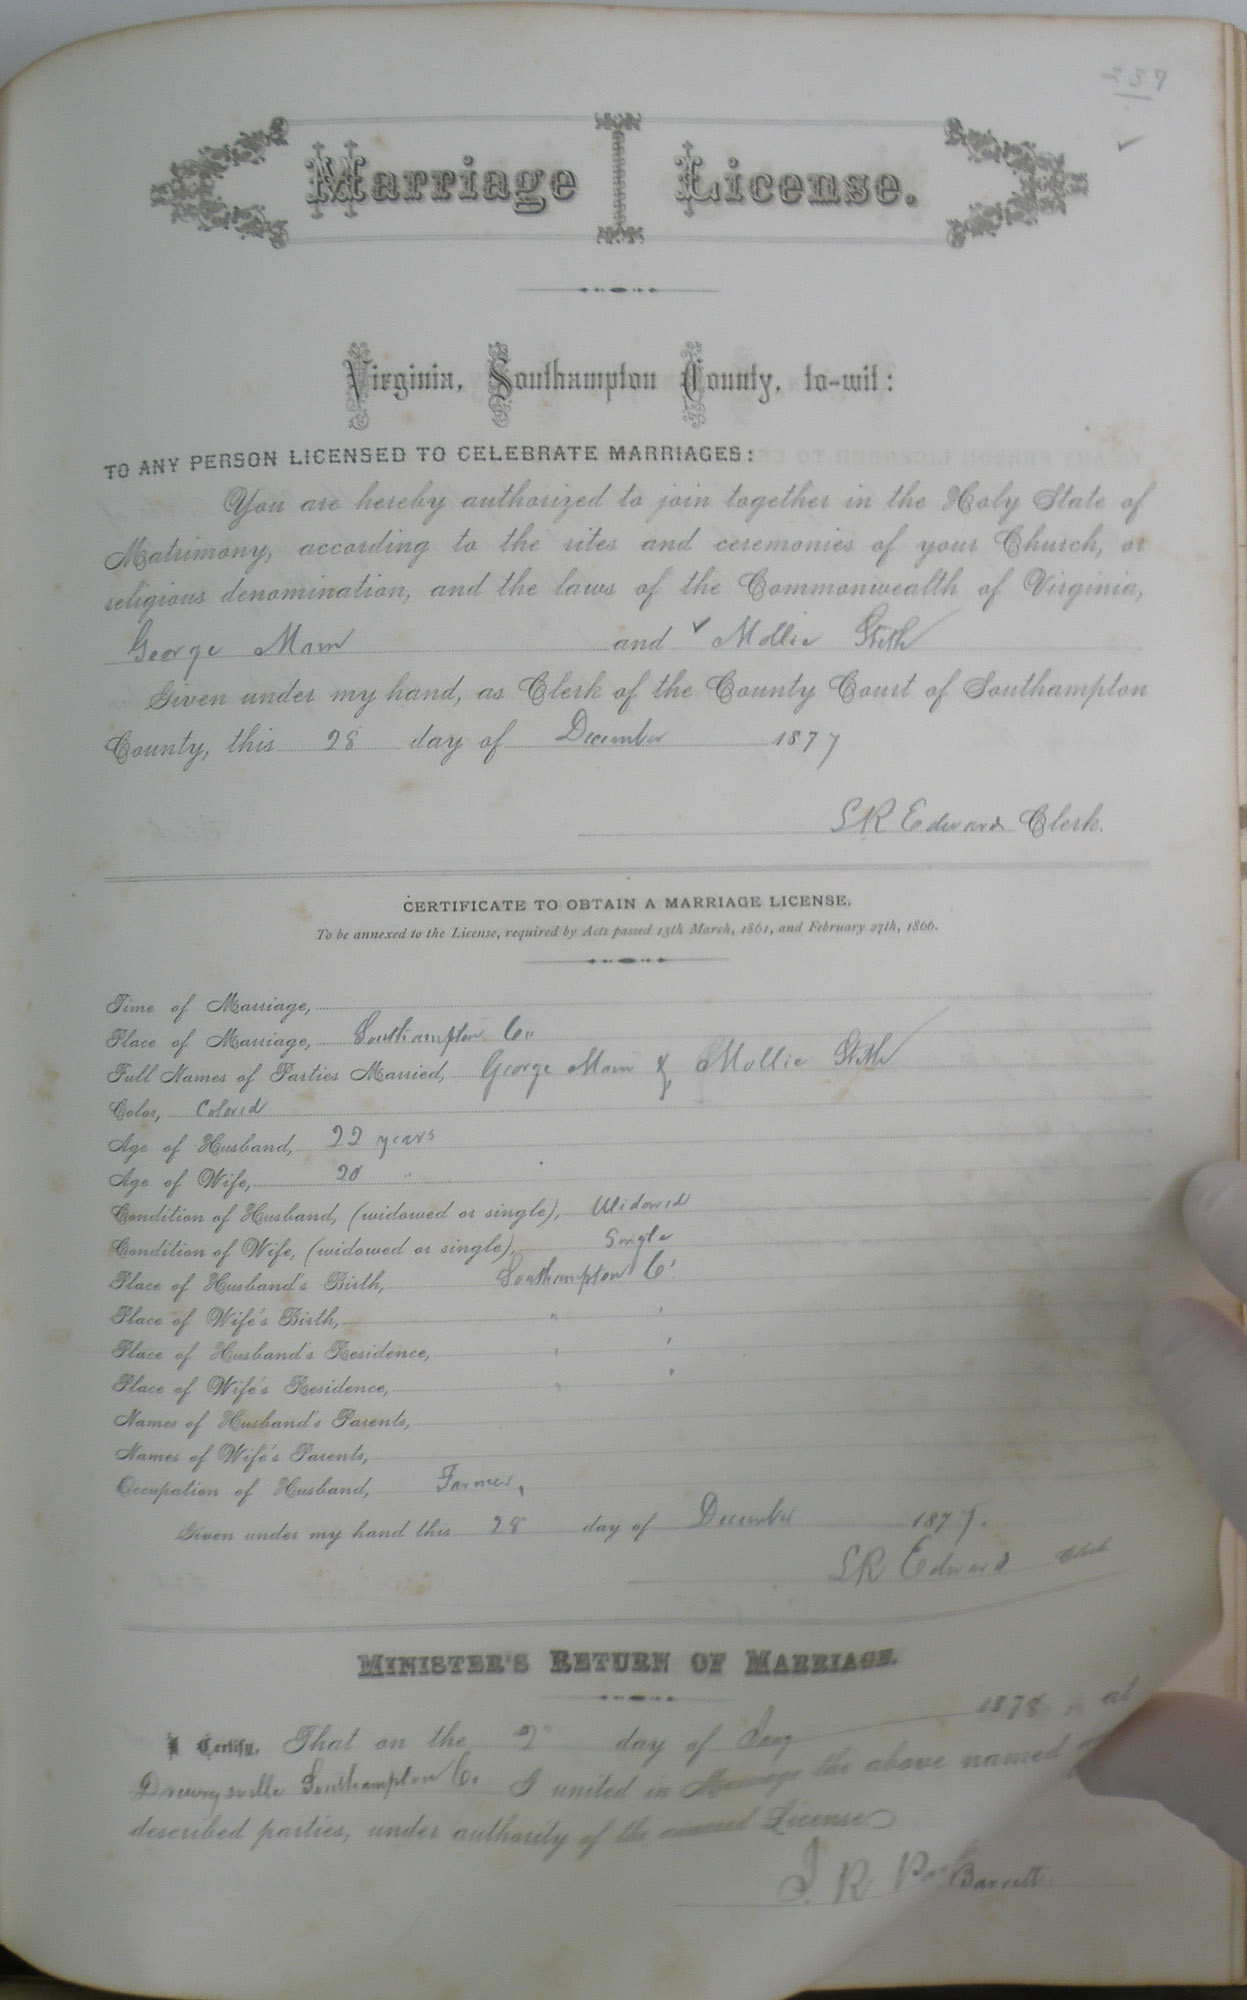 237
Marriage License.
Virginia, Southampton County, to-wit:
TO ANY PERSON LICENSED TO CELEBRATE MARRIAGES:
You are hereby authorized to join together in the Holy State of
Matrimony, according to the rites and ceremonies of your Church, or
religious denomination, and the laws of the Commonwealth of Virginia,
George Mann and ✓ Mollie Stith
Given under my hand, as Clerk of the County Court of Southampton
County, this 28 day of December 1877
LR Edwards Clerk.
CERTIFICATE TO OBTAIN A MARRIAGE LICENSE,
To be annexed to the License, required by Acts passed 15th March, 1861, and February 27th, 1866.
Time of Marriage,
Place of Marriage, Southampton Co.
Full Names of Parties Married, George Mann & Mollie Stith
Color, Colored
Age of Husband, 22 years
Age of Wife, 20 "
Condition of Husband, (widowed or single), Widowed
Condition of Wife, (widowed or single), Single
Place of Husband's Birth, Southampton Co.
Place of Wife's Birth, " "
Place of Husband's Residence, " "
Place of Wife's Residence, " "
Names of Husband's Parents,
Names of Wife's Parents,
Occupation of Husband, Farmer,
Given under my hand this 28 day of December 1877.
LR Edwards Clerk
MINISTER'S RETURN OF MARRIAGE.
I Certify, That on the 2 day of Jany 1878 at
Drewrysville Southampton Co. I united in Marriage the above named
described parties, under authority of the annexed License
J. R. Barrett